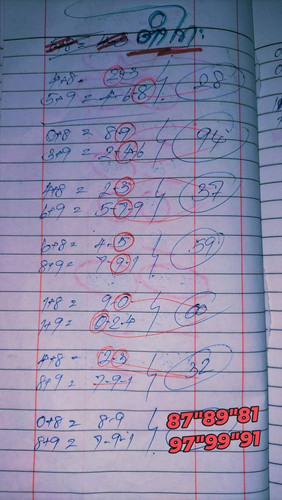 4+8 = 2-3
5+9 = 4-6-8 28
0+8 = 8-9
3+9 = 2-4-6 94
4+8 = 2-3
6+9 = 5-7-9 37
6+8 = 4-5
8+9 = 7-9-1 59
1+8 = 9-0
1+9 = 0-2-4 00
4+8 = 2-3
8+9 = 7-9-1 32
0+8 = 8-9 87"89"81
8+9 = 7-9-1 97"99"91